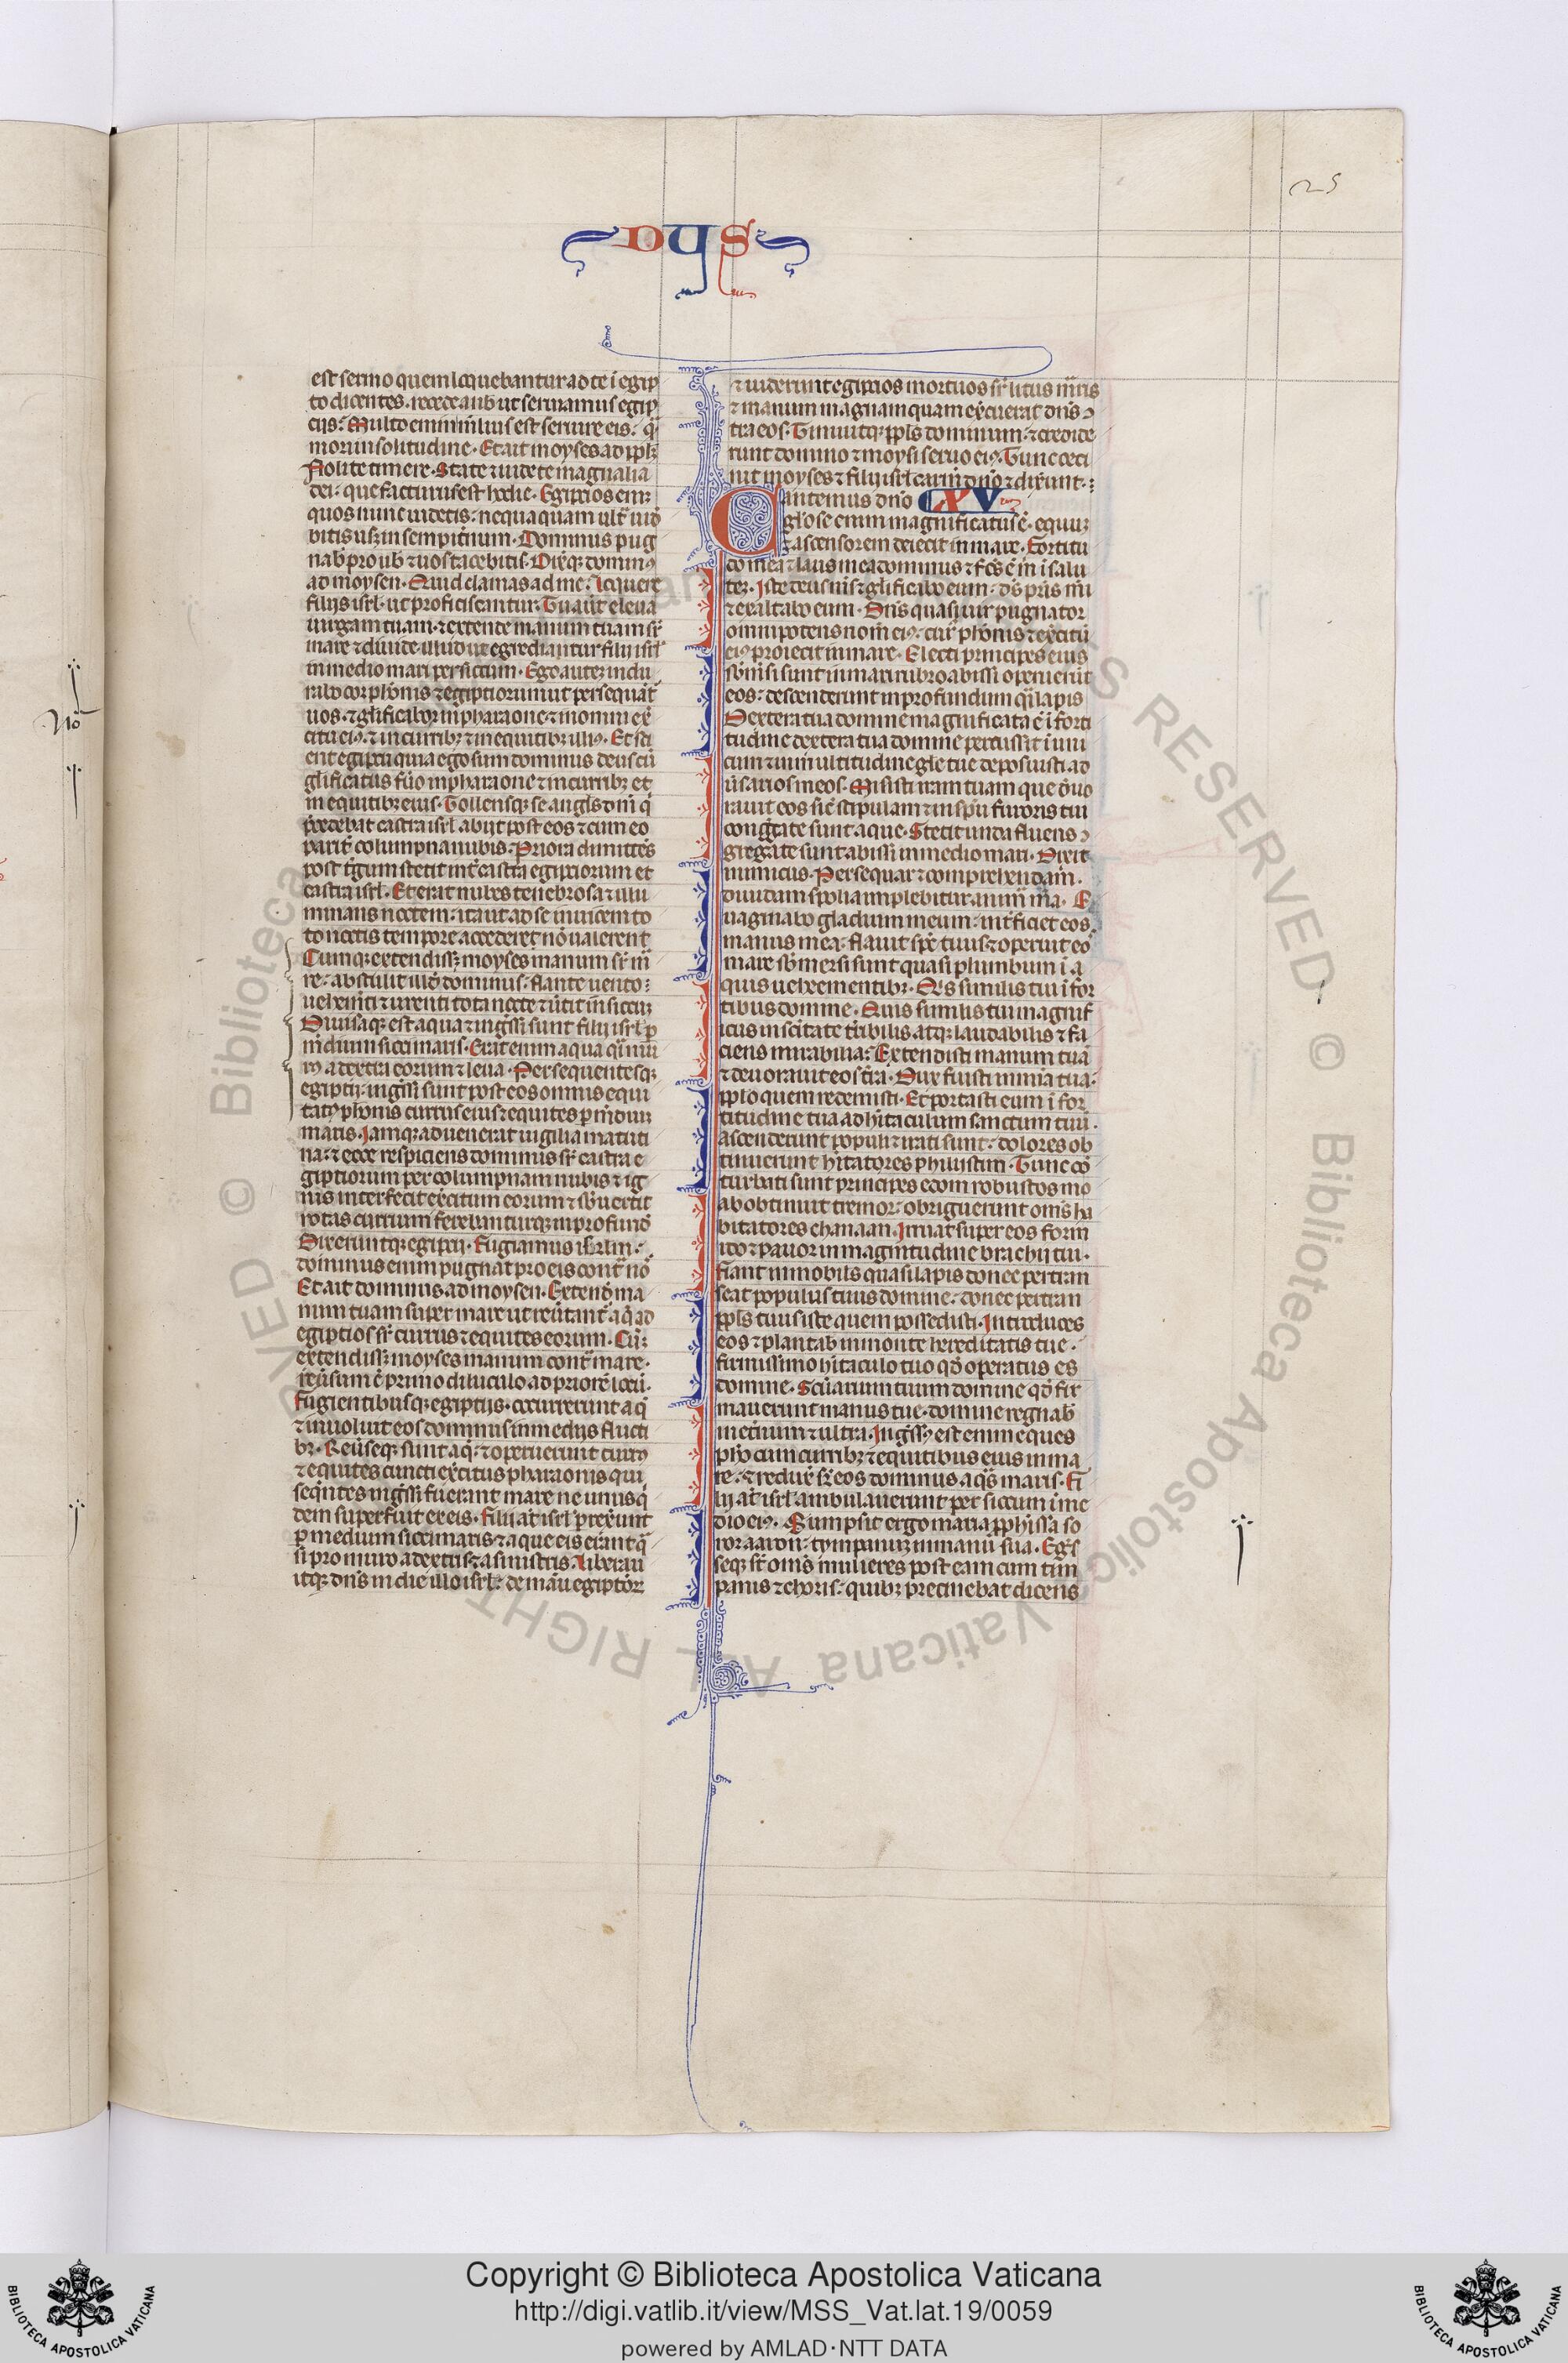 25
DYS
est sermo quem loquebantur ad te i egip
to dicentes. recede a nob ut seruiamus egip
cijs: Multo enim melius est seruire eis. qͣ
mori in solitudine. Et ait moyses ad pplꝫ
Nolite timere. State ⁊ uidete magnalia
dei: que facturus est hodie. Egiptios enī
quos nunc uidetis: nequaquam ultᷓ uid
bitis usqꝫ in sempitnum. Dominus pug
nab pro uob ⁊ uos tacebitis. Dixqꝫ domin⁹
ad moysen. Quid clamas ad me. Loquere
filijs isrl. ut proficiscantur. Tu aut eleua
uirgam tuam. ⁊ extende manum tuam sr̄
mare ⁊ diuide illud ut egrediantur filij isrl
in medio mari per siccum. Ego autez indu
rabo cor phōnis ⁊ egiptiorum ut persequāt
uos. ⁊ glificabor in pharaone ⁊ in omni ex
citu ei⁹. ⁊ in curribꝫ ⁊ in equitibꝫ illi⁹. Et sci
ent egiptij quia ego sum dominus deus cū
glificatus fuo in pharaone ⁊ in curribꝫ et
in equitibꝫ eius. Tollensqꝫ se angls dni q
pcedebat castra isrl. abijt post eos ⁊ cum eo
parit columpna nubis. Priora dimittēs
post tgum stetit int castra egiptiorum et
castra isrl. Et erat nubes tenebrosa ⁊ illu
minans noctem. ita ut ad se inuicem to
to noctis tempore accederet nō ualerent
Cumqꝫ extendissꝫ moyses manum sr̄ m
re. abstulit illd dominus. flante uento:
uehemti ⁊ urenti tota nocte ⁊ ūtit in siccuꝫ
Diuisaqꝫ est aqua ⁊ ingssi sunt filij isrl p
mdium sicci maris. Erat enim aqua qͣsi mur
⁹ a dextra eorum ⁊ leua. Persequentesqꝫ
egiptij. ingssi sunt post eos omnis equi
tat⁹ phōnis currus eius ⁊ equites p mdiuꝫ
maris. Iamqꝫ aduenerat uigilia matuti
na. ⁊ ecce respiciens dominus sr̄ castra e
giptiorum per columpnam nubis ⁊ ig
nis interfecit exrcitum eorum ⁊ sbuertit
rotas curruum ferebanturqꝫ in profund
Dixeruntqꝫ egiptij. fugiamus isrlm:
dominus enim pugnat pro eis contᷓ nō
Et ait dominus ad moysen. Extende ma
num tuam super mare ut reutant aq ad
egiptios sr̄ currus ⁊ equites eorum. Cū
extendissꝫ moyses manum contᷓ mare.
reusum ē primo diluculo ad priorē locū.
Fugientibusqꝫ egiptijs. occurrerunt aq
⁊ inuoluit eos dominus in medijs flucti
bꝫ. Reuseqꝫ sunt aq. ⁊ operuerunt curr⁹
⁊ equites cuncti exrcitus pharaonis qui
seqntes ingssi fuerant mare ne unus q
dem superfuit ex eis. Filij at isrl prexunt
p medium sicci maris ⁊ aque eis erant qͣ
si pro muro a dextris ⁊ a sinistris. Liberau
itqꝫ dns in die illo isrl. de manu egiptor
⁊ uiderunt egiptios mortuos sr̄ litus mris
⁊ manum magnam quam exrcuerat dns ɔ
tra eos. Timuitqꝫ ppls dominum. ⁊ credide
runt domino ⁊ moysi seruo ei⁹. Tunc ceci
nit moyses ⁊ filij isrl carm dno ⁊ dixrunt.
Cantemus dno XV
gloˀse enim magnificatus ē. equuꝫ
⁊ ascensorem deiecit in mare. Fortitu
do mea ⁊ laus mea dominus ⁊ fcs ē m i salu
teꝫ. Iste deus ms ⁊ glificabo eum. ds pris mi
⁊ exaltabo eum. Dns quasi uir pugnator
omnipotens nom ei⁹. curr phōnis ⁊ exrcitū
ei⁹ proiecit in mare. Electi principes eius
sbmsi sunt in mari rubro abissi operuerūt
eos: descenderunt in profundum qͣsi lapis
Dextera tua domine magnificata ē i forti
tudine dextera tua domine percussit inimi
cum ⁊ in multitudine gle tue deposuisti ad
ūsarios meos. Misisti iram tuam que deuo
rauit eos sic stipulam ⁊ in spu furoris tui
congᷓgate sunt aque. Stetit unda fluens ɔ
gregate sunt abissi in medio mari. Dixit
inimicus. Persequar ⁊ comprehendam.
diuidam spolia implebitur anim ma. E
uaginabo gladium meum. intficiet eos
manus mea. flauit spc tuus ⁊ operuit eo
mare sbmersi sunt quasi plumbum i a
quis uehementibꝫ. Qis similis tui i for
tibus domine. Quis similis tui magnif
icus in scitate tribilis. atqꝫ laudabilis ⁊ fa
ciens mirabilia: Extendisti manum tuā
⁊ deuorauit eos tra. Dux fuisti in mia tua.
pplo quem redemisti. Et portasti eum i for
titudine tua ad hitaculum sanctum tuū.
ascenderunt populi ⁊ irati sunt: dolores ob
tinuerunt hitatores philistim. Tunc cō
turbati sunt principes edom robustos mo
ab obtinuit tremor: obriguerunt omis ha
bitatores chanaan. Irruat super eos form
ido ⁊ pauor in magnitudine brachij tui.
fiant inmobils quasi lapis donec pertran
seat populus tuus domine: donec pertran
ppls tuus iste quem possedisti. Introduces
eos ⁊ plantab in monte hereditatis tue.
firmissimo hitaculo tuo qd operatus es
domine. Scuarium tuum domine qd fir
mauerunt manus tue. domine regnab
in etnum ⁊ ultra. Ingss⁹ est enim eques
phō cum curribꝫ ⁊ equitibus eius in ma
re. ⁊ reduxt sr̄ eos dominus aqs maris. Fi
lij at isrl ambulauerunt per siccum i me
dio ei⁹. Sumpsit ergo maria pphissa so
ror aaron: tympanuꝫ in manu sua. Egss
seqꝫ st oms mulieres post eam cum tim
panis ⁊ choris: quibꝫ precinebat dicens
No
Copyright © Biblioteca Apostolica Vaticana
http://digi.vatlib.it/view/MSS_Vat.lat.19/0059
powered by AMLAD·NTT DATA
BIBLIOTECA APOSTOLICA VATICANA
BIBLIOTECA APOSTOLICA VATICANA